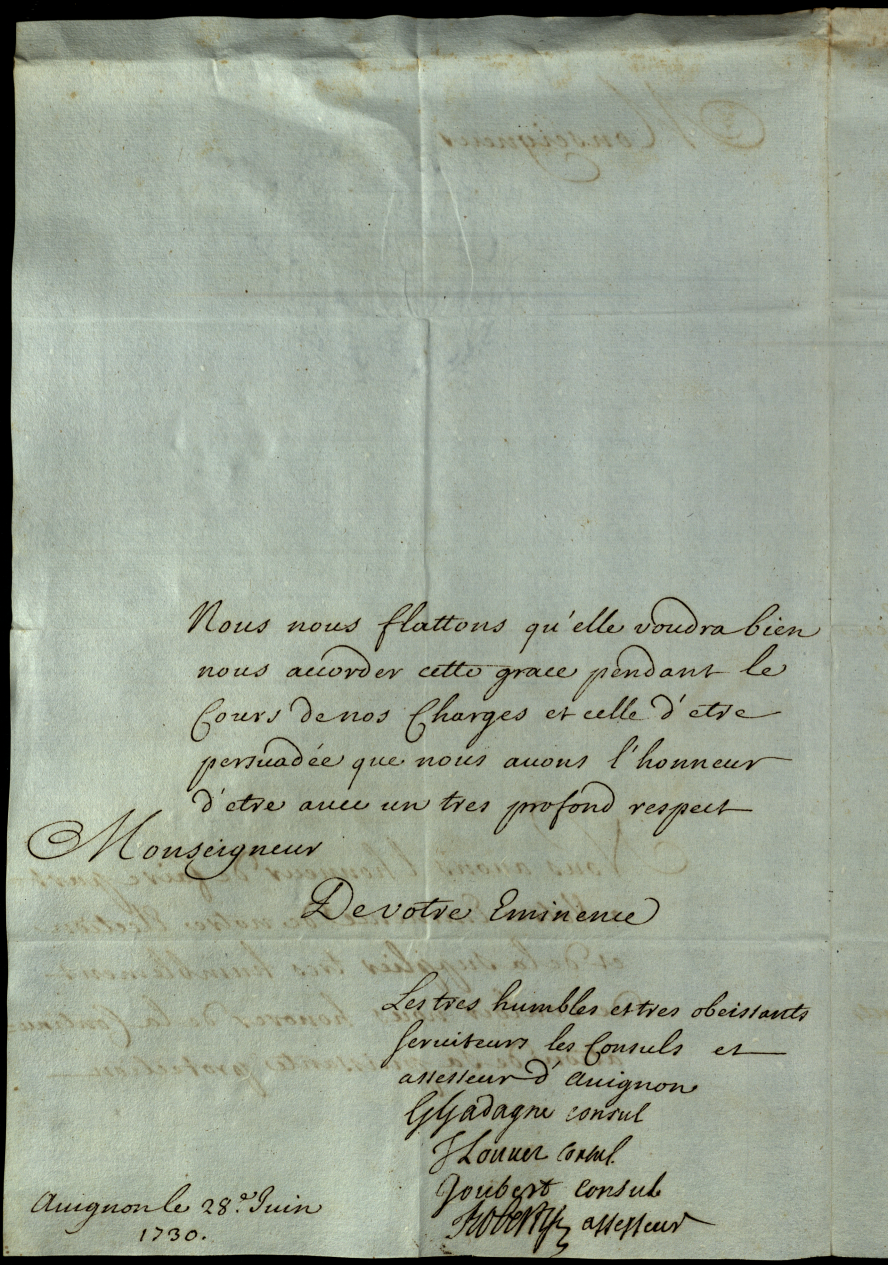 Nous nous flattons qu'elle voudra bien
nous accorder cette grace pendant le
Cours de nos Charges et celle d'etre
persuadée que nous auons l'honneur
d'etre auec un tres profond respect
Monseigneur
De votre Eminence
Les tres humbles et tres obeissants
seruiteurs les Consuls et
assesseur d'auignon
Gadagne consul
consul
Joubert consul
assesseur
Auignon le 28e Juin
1730.